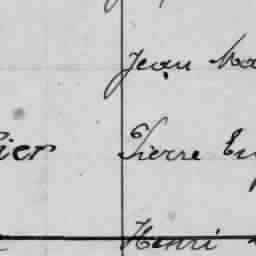 Jean Ma
ier Pierre Eu
Henri